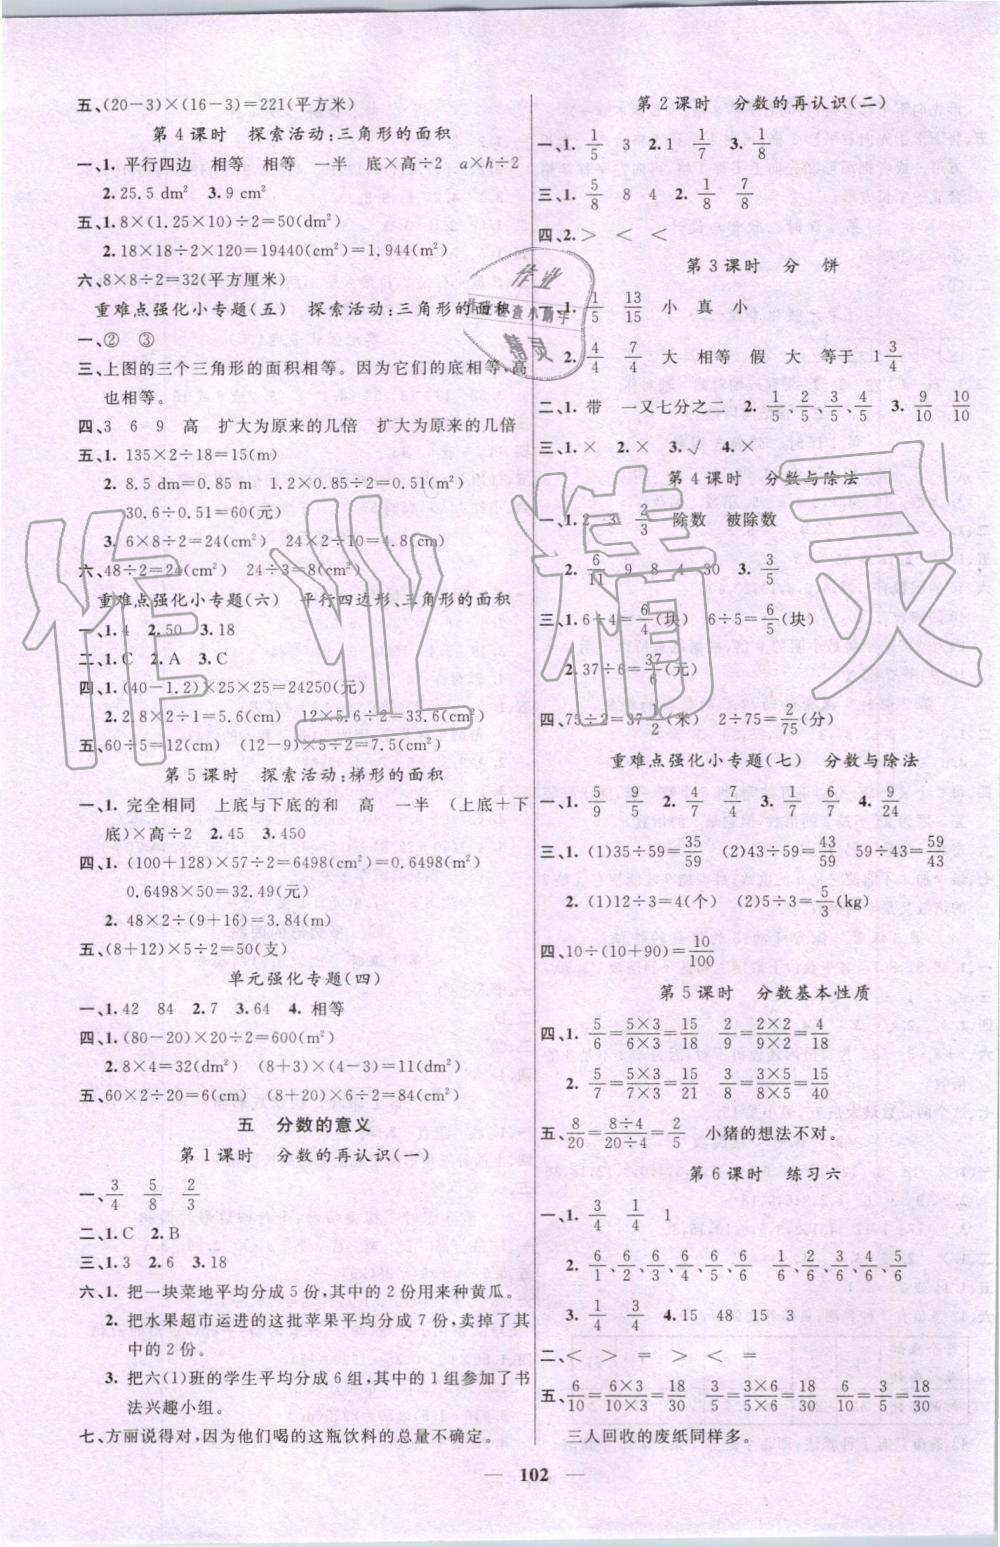 五、(20-3)×(16-3)=221(平方米)
第4课时 探索活动:三角形的面积
一、1. 平行四边 相等 相等 一半 底×高÷2 a×h÷2
2. 25.5 dm² 3. 9 cm²
五、1. 8×(1.25×10)÷2=50(dm²)
2. 18×18÷2×120=19440(cm²)=1.944(m²)
六、8×8÷2=32(平方厘米)
重难点强化小专题(五) 探索活动:三角形的面积
一、② ③
三、上图的三个三角形的面积相等。因为它们的底相等,高
也相等。
四、3 6 9 高 扩大为原来的几倍 扩大为原来的几倍
五、1. 135×2÷18=15(m)
2. 8.5 dm=0.85 m 1.2×0.85÷2=0.51(m²)
30.6÷0.51=60(元)
3. 6×8÷2=24(cm²) 24×2÷10=4.8(cm)
六、48÷2=24(cm²) 24÷3=8(cm²)
重难点强化小专题(六) 平行四边形、三角形的面积
一、1. 4 2. 50 3. 18
二、1. C 2. A 3. C
四、1. (40-1.2)×25×25=24250(元)
2. 2.8×2÷1=5.6(cm) 12×5.6÷2=33.6(cm²)
五、60÷5=12(cm) (12-9)×5÷2=7.5(cm²)
第5课时 探索活动:梯形的面积
一、1. 完全相同 上底与下底的和 高 一半 (上底+下
底)×高÷2 2. 45 3. 450
四、1. (100+128)×57÷2=6498(cm²)=0.6498(m²)
0.6498×50=32.49(元)
2. 48×2÷(9+16)=3.84(m)
五、(8+12)×5÷2=50(支)
单元强化专题(四)
一、1. 42 84 2. 7 3. 64 4. 相等
四、1. (80-20)×20÷2=600(m²)
2. 8×4=32(dm²) (8+3)×(4-3)=11(dm²)
五、60×2÷20=6(cm) (8+20)×6÷2=84(cm²)
五 分数的意义
第1课时 分数的再认识(一)
一、3/4 5/8 2/3
二、1. C 2. B
三、1. 3 2. 6 3. 18
六、1. 把一块菜地平均分成5份,其中的2份用来种黄瓜。
2. 把水果超市运进的这批苹果平均分成7份,卖掉了其
中的2份。
3. 把六(1)班的学生平均分成6组,其中的1组参加了书
法兴趣小组。
七、方丽说得对,因为他们喝的这瓶饮料的总量不确定。
第2课时 分数的再认识(二)
一、1. 1/5 3 2. 1 1/7 3. 1/8
三、1. 5/8 8 4 2. 1/8 7/8
四、2. > < <
第3课时 分 饼
一、1. 1/5 13/15 小 真 小
2. 4/4 7/4 大 相等 假 大 等于 1 3/4
二、1. 带 一又七分之二 2. 1/5、2/5、3/5、4/5 3. 9/10 10/10
三、1. × 2. × 3. √ 4. ×
第4课时 分数与除法
一、1. 2 3 2/3 除数 被除数
2. 6/11 9 8 4 30 3. 3/5
三、1. 6÷4=6/4(块) 6÷5=6/5(块)
2. 37÷6=37/6(元)
四、75÷2=37 1/2(米) 2÷75=2/75(分)
重难点强化小专题(七) 分数与除法
一、1. 5/9 1/5 2. 4/7 4/7 3. 1/7 6/7 4. 9/24
三、1. (1)35÷59=35/59 (2)43÷59=43/59 59÷43=59/43
2. (1)12÷3=4(个) (2)5÷3=5/3(kg)
四、10÷(10+90)=10/100
第5课时 分数基本性质
四、1. 5/6=5×3/6×3=15/18 2/9=2×2/9×2=4/18
2. 5/7=5×3/7×3=15/21 3/8=3×5/8×5=15/40
五、8/20=8÷4/20÷4=2/5 小猪的想法不对。
第6课时 练习六
一、1. 3/4 1/4 1
2. 6/1、6/2、6/3、6/4、6/5、6/6 1/6、2/6、3/6、4/6、5/6
3. 1/4 3/4 4. 15 48 15 3
二、< > = > < =
五、6/10=6×3/10×3=18/30 3/5=3×6/5×6=18/30 6/10=9/15=18/30
三人回收的废纸同样多。
102
作业
精灵
作业精灵